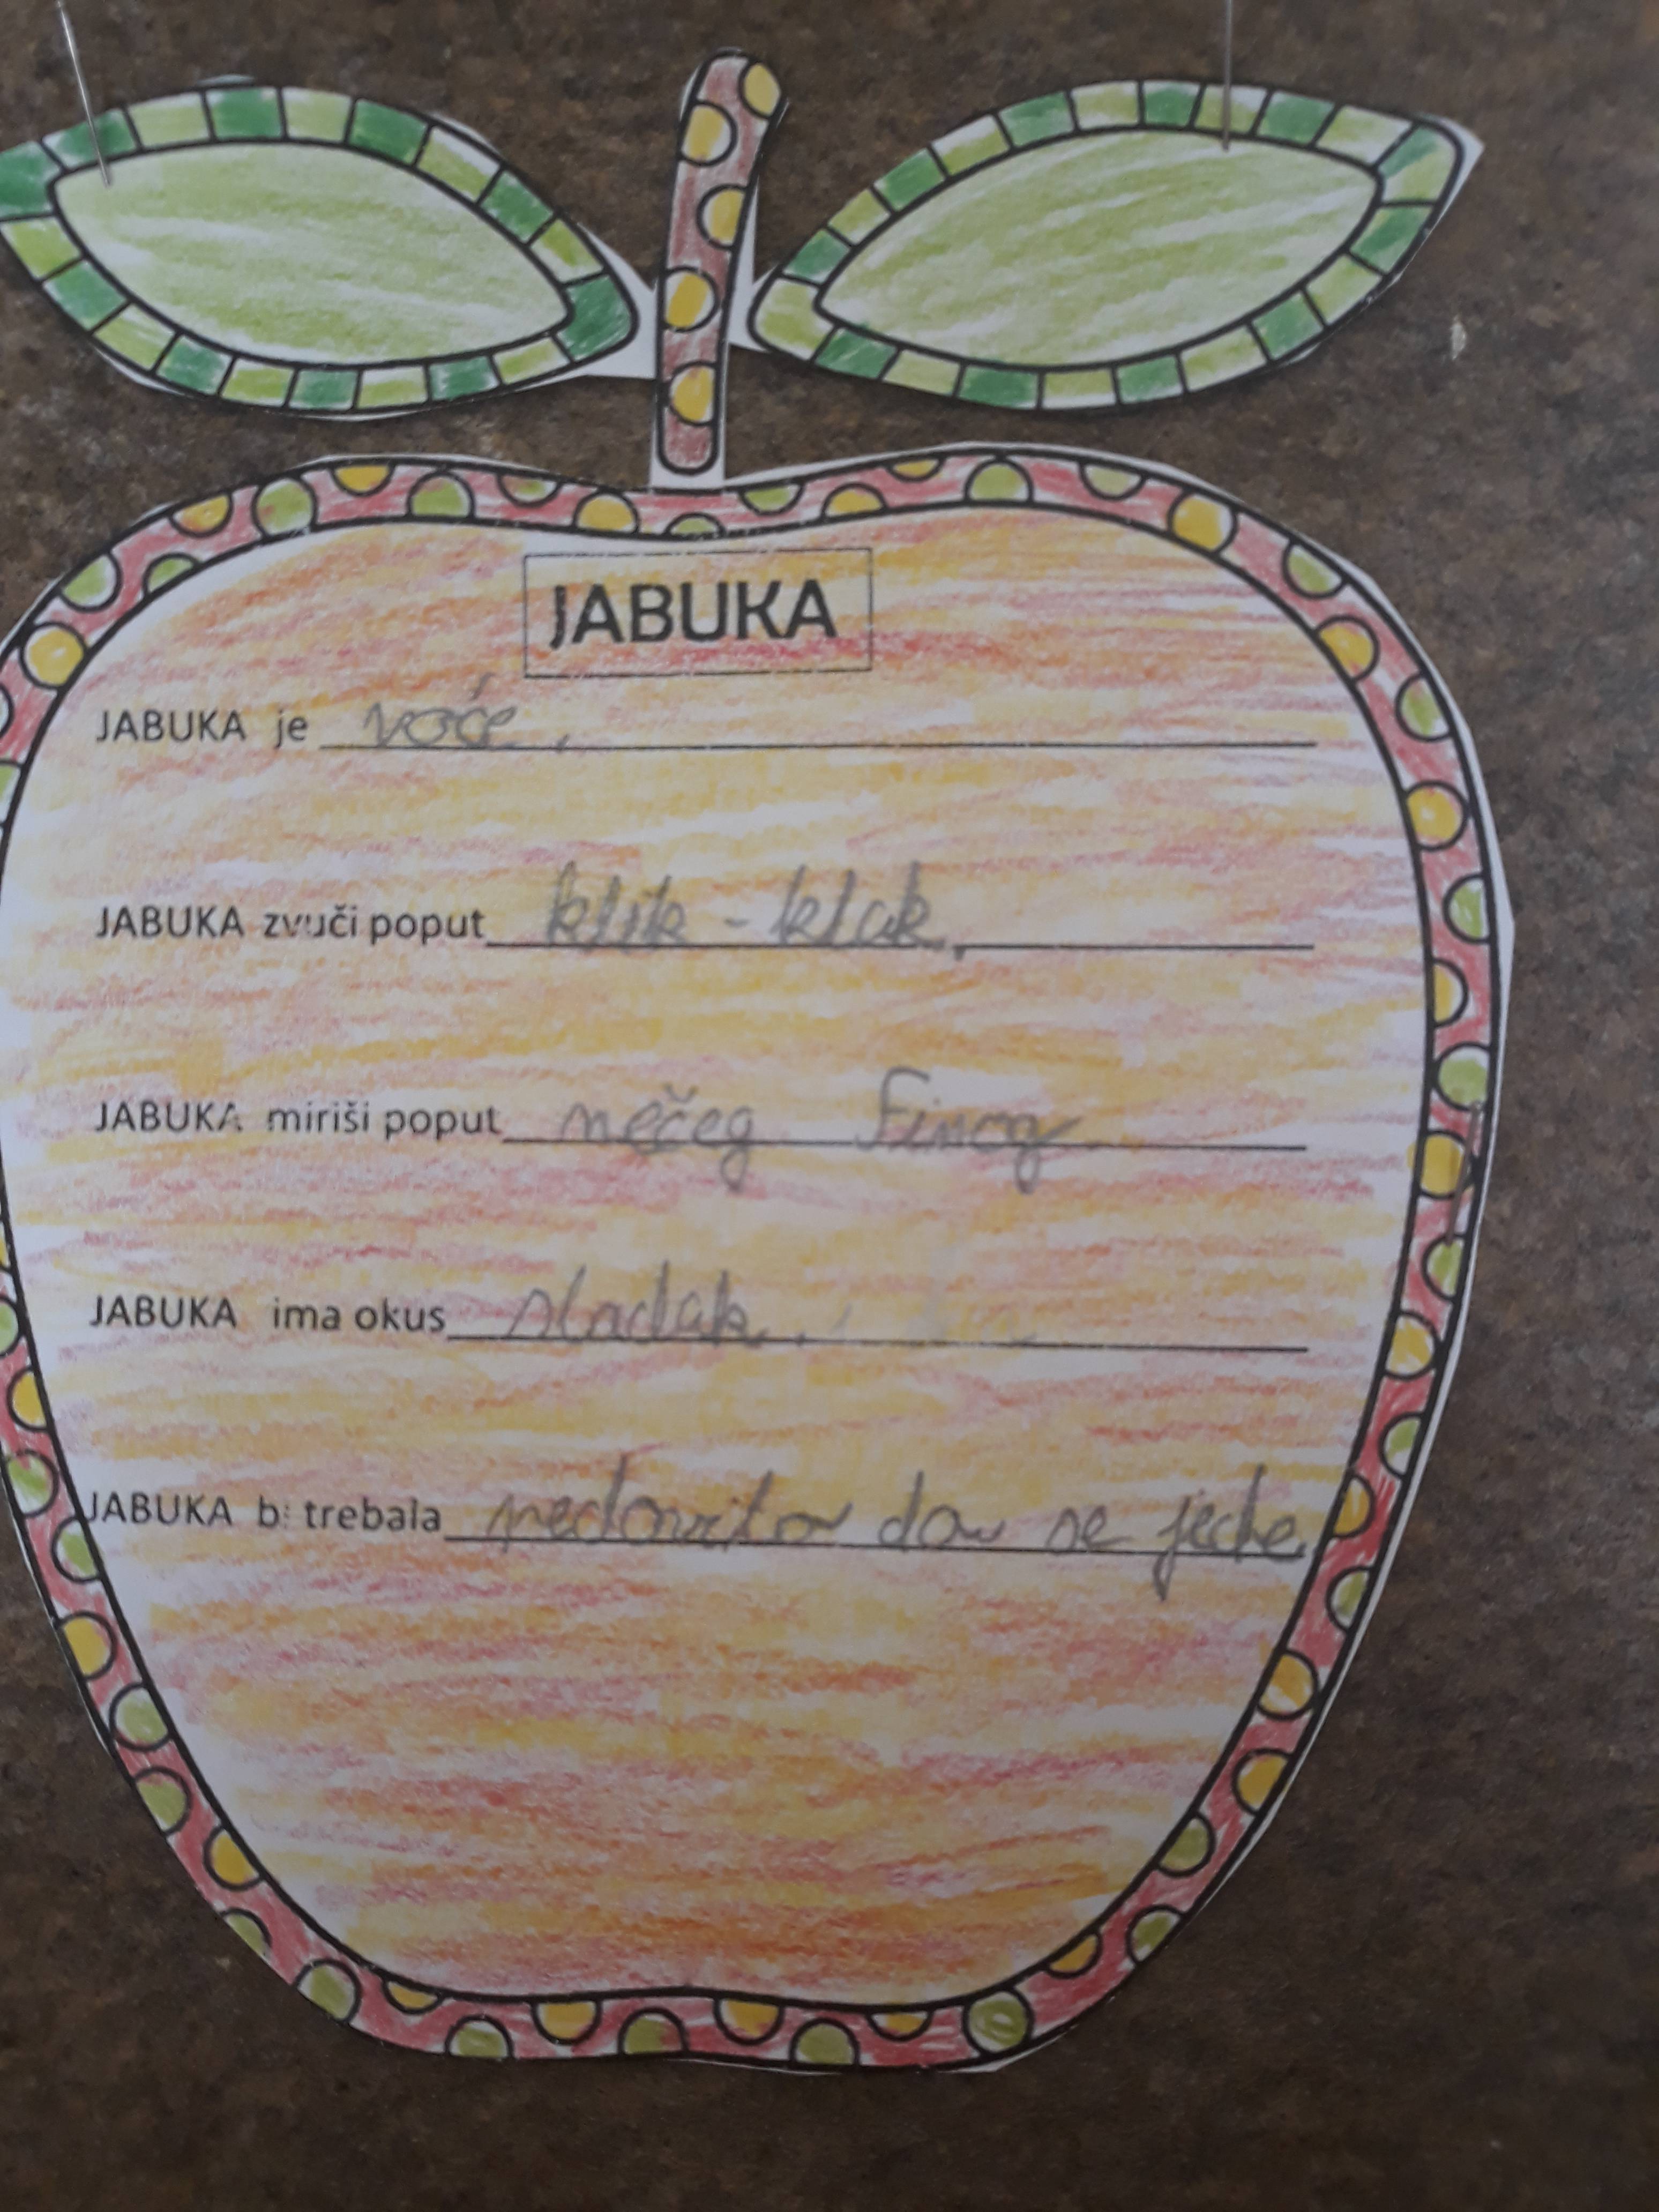 JABUKA
JABUKA je voće.
JABUKA zvuči poput klik - klak.
JABUKA miriši poput nečeg finog
JABUKA ima okus sladak.
JABUKA bi trebala redovito da se jede.